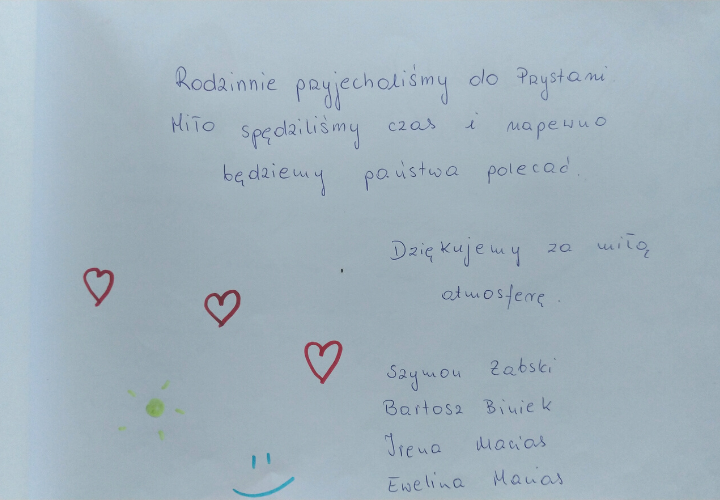 Rodzinnie przyjechaliśmy do Przystani
Miło spędziliśmy czas i napewno
będziemy państwa polecać.
Dziękujemy za miłą
atmosferę.
Szymon Żabski
Bartosz Biniek
Irena Macias
Ewelina Macias